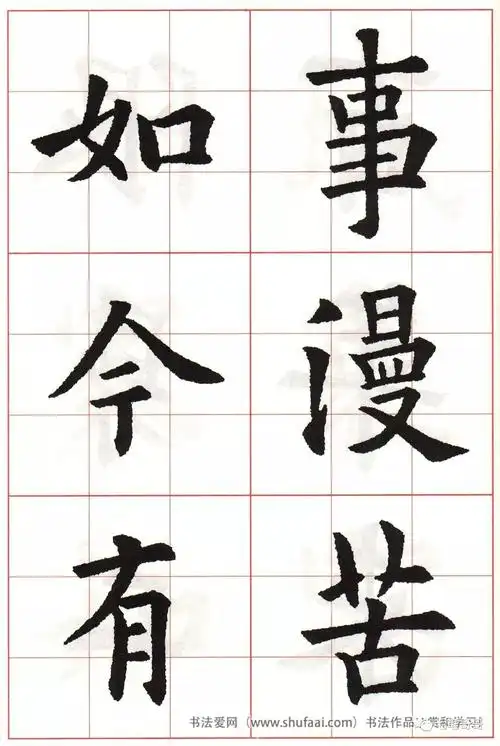 事漫苦
如今有
书法爱网（www.shufaai.com）书法作品欣赏和学习